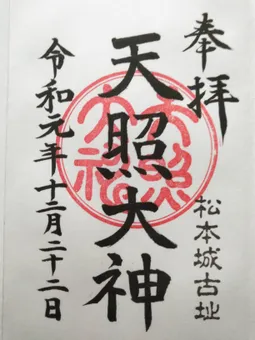 奉拝
松本城古址
天照大神
令和元年十二月二十二日